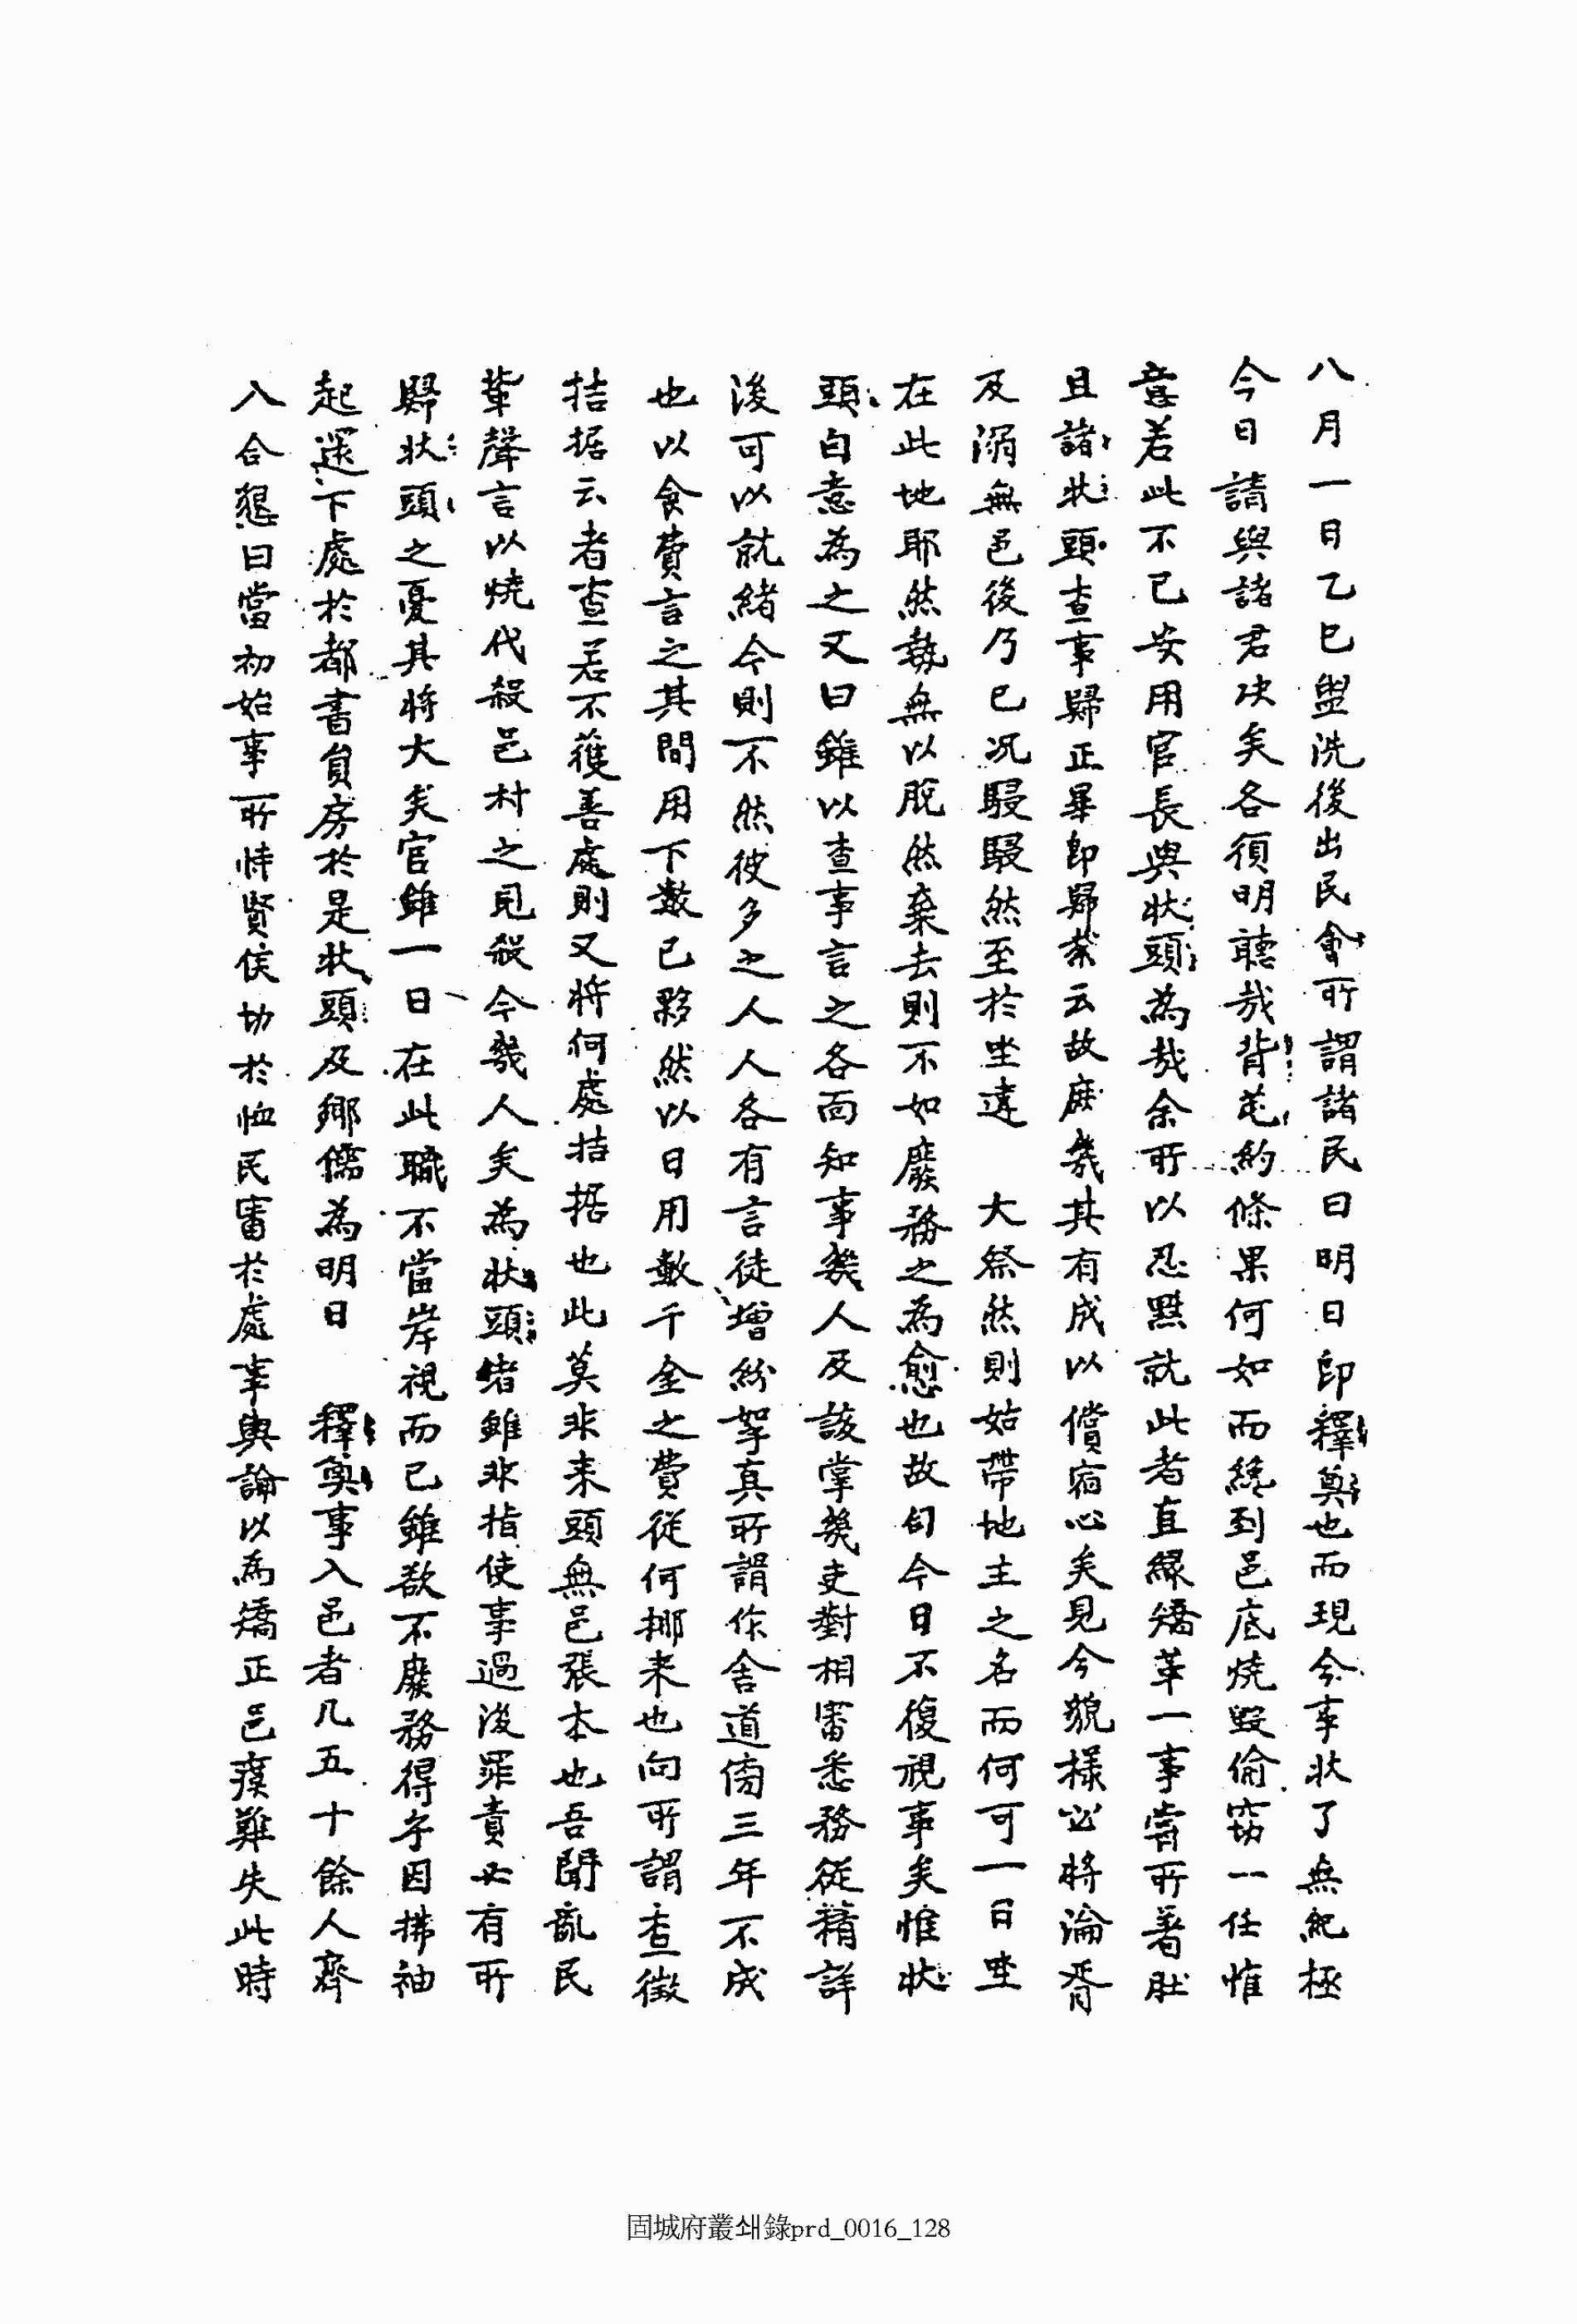 八月一日乙巳盥洗後出民會所謂諸民曰明日卽釋奠也而現今事狀了無紀極
今日請與諸君决矣各須明聽哉背芼約條果何如而終到邑底燒毁偷竊一任惟
意若此不已安用官長與狀頭為哉余所以忍默就此者直緣矯革一事嘗所著肚
且諸狀頭查事歸正畢卽歸業云故庶幾其有成以償宿心矣見今貌樣必將淪胥
及溺無邑後乃已况駸駸然至於坐違 大祭然則姑帶地主之名而何可一日坐
在此地耶然勢無以脫然棄去則不如廢務之為愈也故自今日不復視事矣惟狀
頭自意為之又曰雖以查事言之各面知事幾人及該掌幾吏對相審悉務從精詳
後可以就緖今則不然彼多之人人各有言徒增紛挐真所謂作舍道傍三年不成
也以食費言之其間用下數已夥然以日用數千金之費從何挪来也向所謂查徵
拮据云者查若不獲善處則又將何處拮据也此莫非来頭無邑張本也吾聞亂民
輩聲言以燒代殺邑村之見殺今幾人矣為狀頭者雖非指使事過後罪責必有所
歸狀頭之憂其將大矣官雖一日在此職不當岸視而已雖欲不廢務得乎因拂袖
起還下處於都書員房於是狀頭及鄉儒為明日 釋奠事入邑者凡五十餘人齊
入合懇曰當初始事所恃賢侯切於恤民審於處事輿論以為矯正邑瘼難失此時
固城府叢쇄錄prd_0016_128